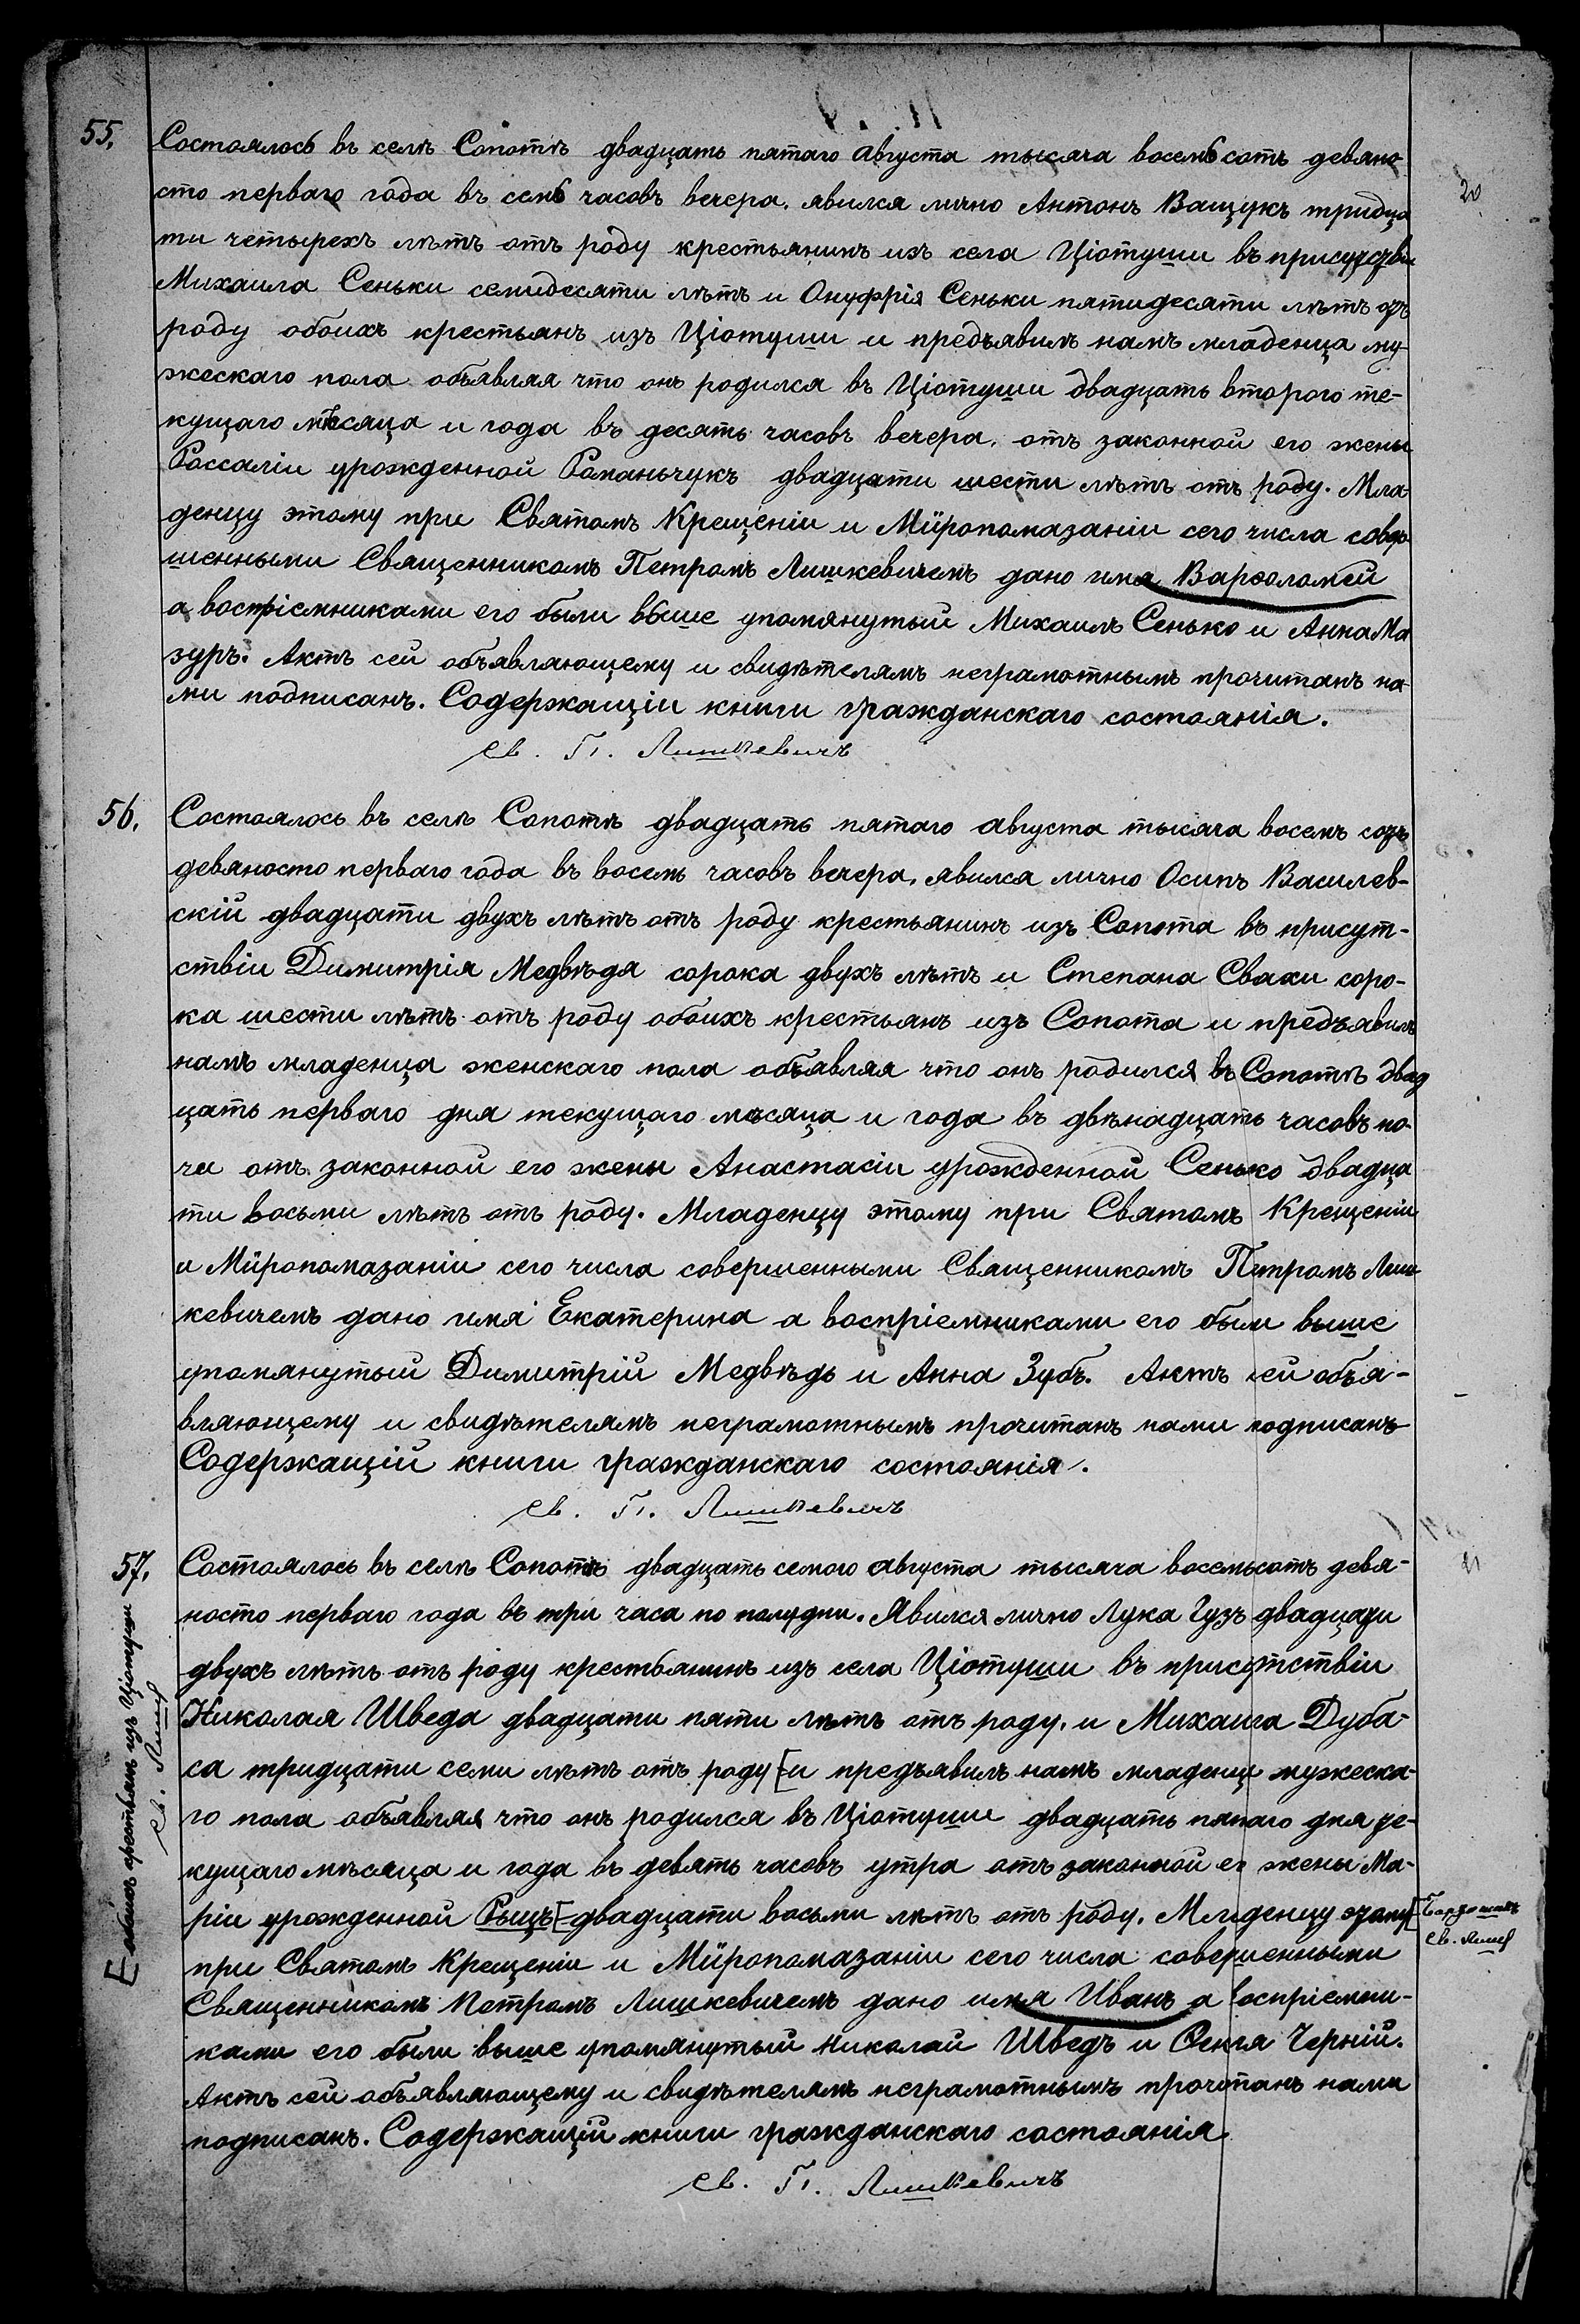 55.
Состоялось въ селѣ Сопотѣ двадцать пятаго августа тысяча восемьсотъ девяно-
сто перваго года въ семь часовъ вечера. явился лично Антонъ Ващукъ тридца
ти четырехъ лѣтъ отъ роду крестьянинъ изъ села Ціотуши въ присутствіи
Михаила Сеньки семидесяти лѣтъ и Онуфрія Сеньки пятидесяти лѣтъ отъ
роду обоихъ крестьянъ изъ Ціотуши и предъявилъ намъ младенца му-
жескаго пола объявляя что онъ родился въ Ціотуши двадцать второго те-
кущаго мѣсяца и года въ десять часовъ вечера. отъ законной его жены
Россаліи урожденной Романьчукъ двадцати шести лѣтъ отъ роду. Мла
денцу этому при Святомъ Крещеніи и Мѵропомазаніи сего числа совер-
шенными Священникомъ Петромъ Лишкевичемъ дано имя Варѳоломей
а воспріемниками его были выше упомянутый Михаилъ Сенько и Анна Ма
зуръ. Актъ сей объявляющему и свидѣтелямъ неграмотнымъ прочитанъ на-
ми подписанъ. Содержащіи книги гражданскаго состоянія.
Св. П. Лишкевичъ
20
56.
Состоялось въ селѣ Сопотѣ двадцать пятаго августа тысяча восемь сотъ
девяносто перваго года въ восемь часовъ вечера. явился лично Осипъ Василев-
скій двадцати двухъ лѣтъ отъ роду крестьянинъ изъ Сопота въ присут-
ствіи Димитрія Медвѣдя сорока двухъ лѣтъ и Степана Свахи соро-
ка шести лѣтъ отъ роду обоихъ крестьянъ изъ Сопота и предъявилъ
намъ младенца женскаго пола объявляя что онъ родился въ Сопотѣ двад
цать перваго дня текущаго мѣсяца и года въ двѣнадцать часовъ но-
чи отъ законной его жены Анастасіи урожденной Сенько двадца
ти восьми лѣтъ отъ роду. Младенцу этому при Святомъ Крещеніи
и Мѵропомазаніи сего числа совершенными Священникомъ Петромъ Лиш-
кевичемъ дано имя Екатерина а воспріемниками его были выше
упомянутый Димитрій Медвѣдь и Анна Зубъ. Актъ сей объя-
вляющему и свидѣтелямъ неграмотнымъ прочитанъ нами подписанъ
Содержащій книги гражданскаго состоянія.
Св. П. Лишкевичъ
57.
Состоялось въ селѣ Сопотѣ двадцать семого августа тысяча восемьсотъ девя-
носто перваго года въ три часа по полудни. Явился лично Лука Гузъ двадцати
двухъ лѣтъ отъ роду крестьянинъ изъ села Ціотуши въ присутствіи
Николая Шведа двадцати пяти лѣтъ отъ роду. и Михаила Дуба-
са тридцати семи лѣтъ отъ роду [ и предъявилъ намъ младенца мужеска-
го пола объявляя что онъ родился въ Ціотуши двадцать пятаго дня те-
кущаго мѣсяца и года въ девять часовъ утра отъ законной его жены Ма-
ріи урожденной Рыцъ [ двадцати восьми лѣтъ отъ роду. Младенцу этому
при Святомъ Крещеніи и Мѵропомазаніи сего числа совершенными
Священникомъ Петромъ Лишкевичемъ дано имя Иванъ а воспріемни-
ками его были выше упомянутый Николай Шведъ и Ѳекля Черній.
Актъ сей объявляющему и свидѣтелямъ неграмотнымъ прочитанъ нами
подписанъ. Содержащій книги гражданскаго состоянія
Св. П. Лишкевичъ
обоихъ крестьянъ изъ Ціотуши
Св. Лишк
Св. Лишк